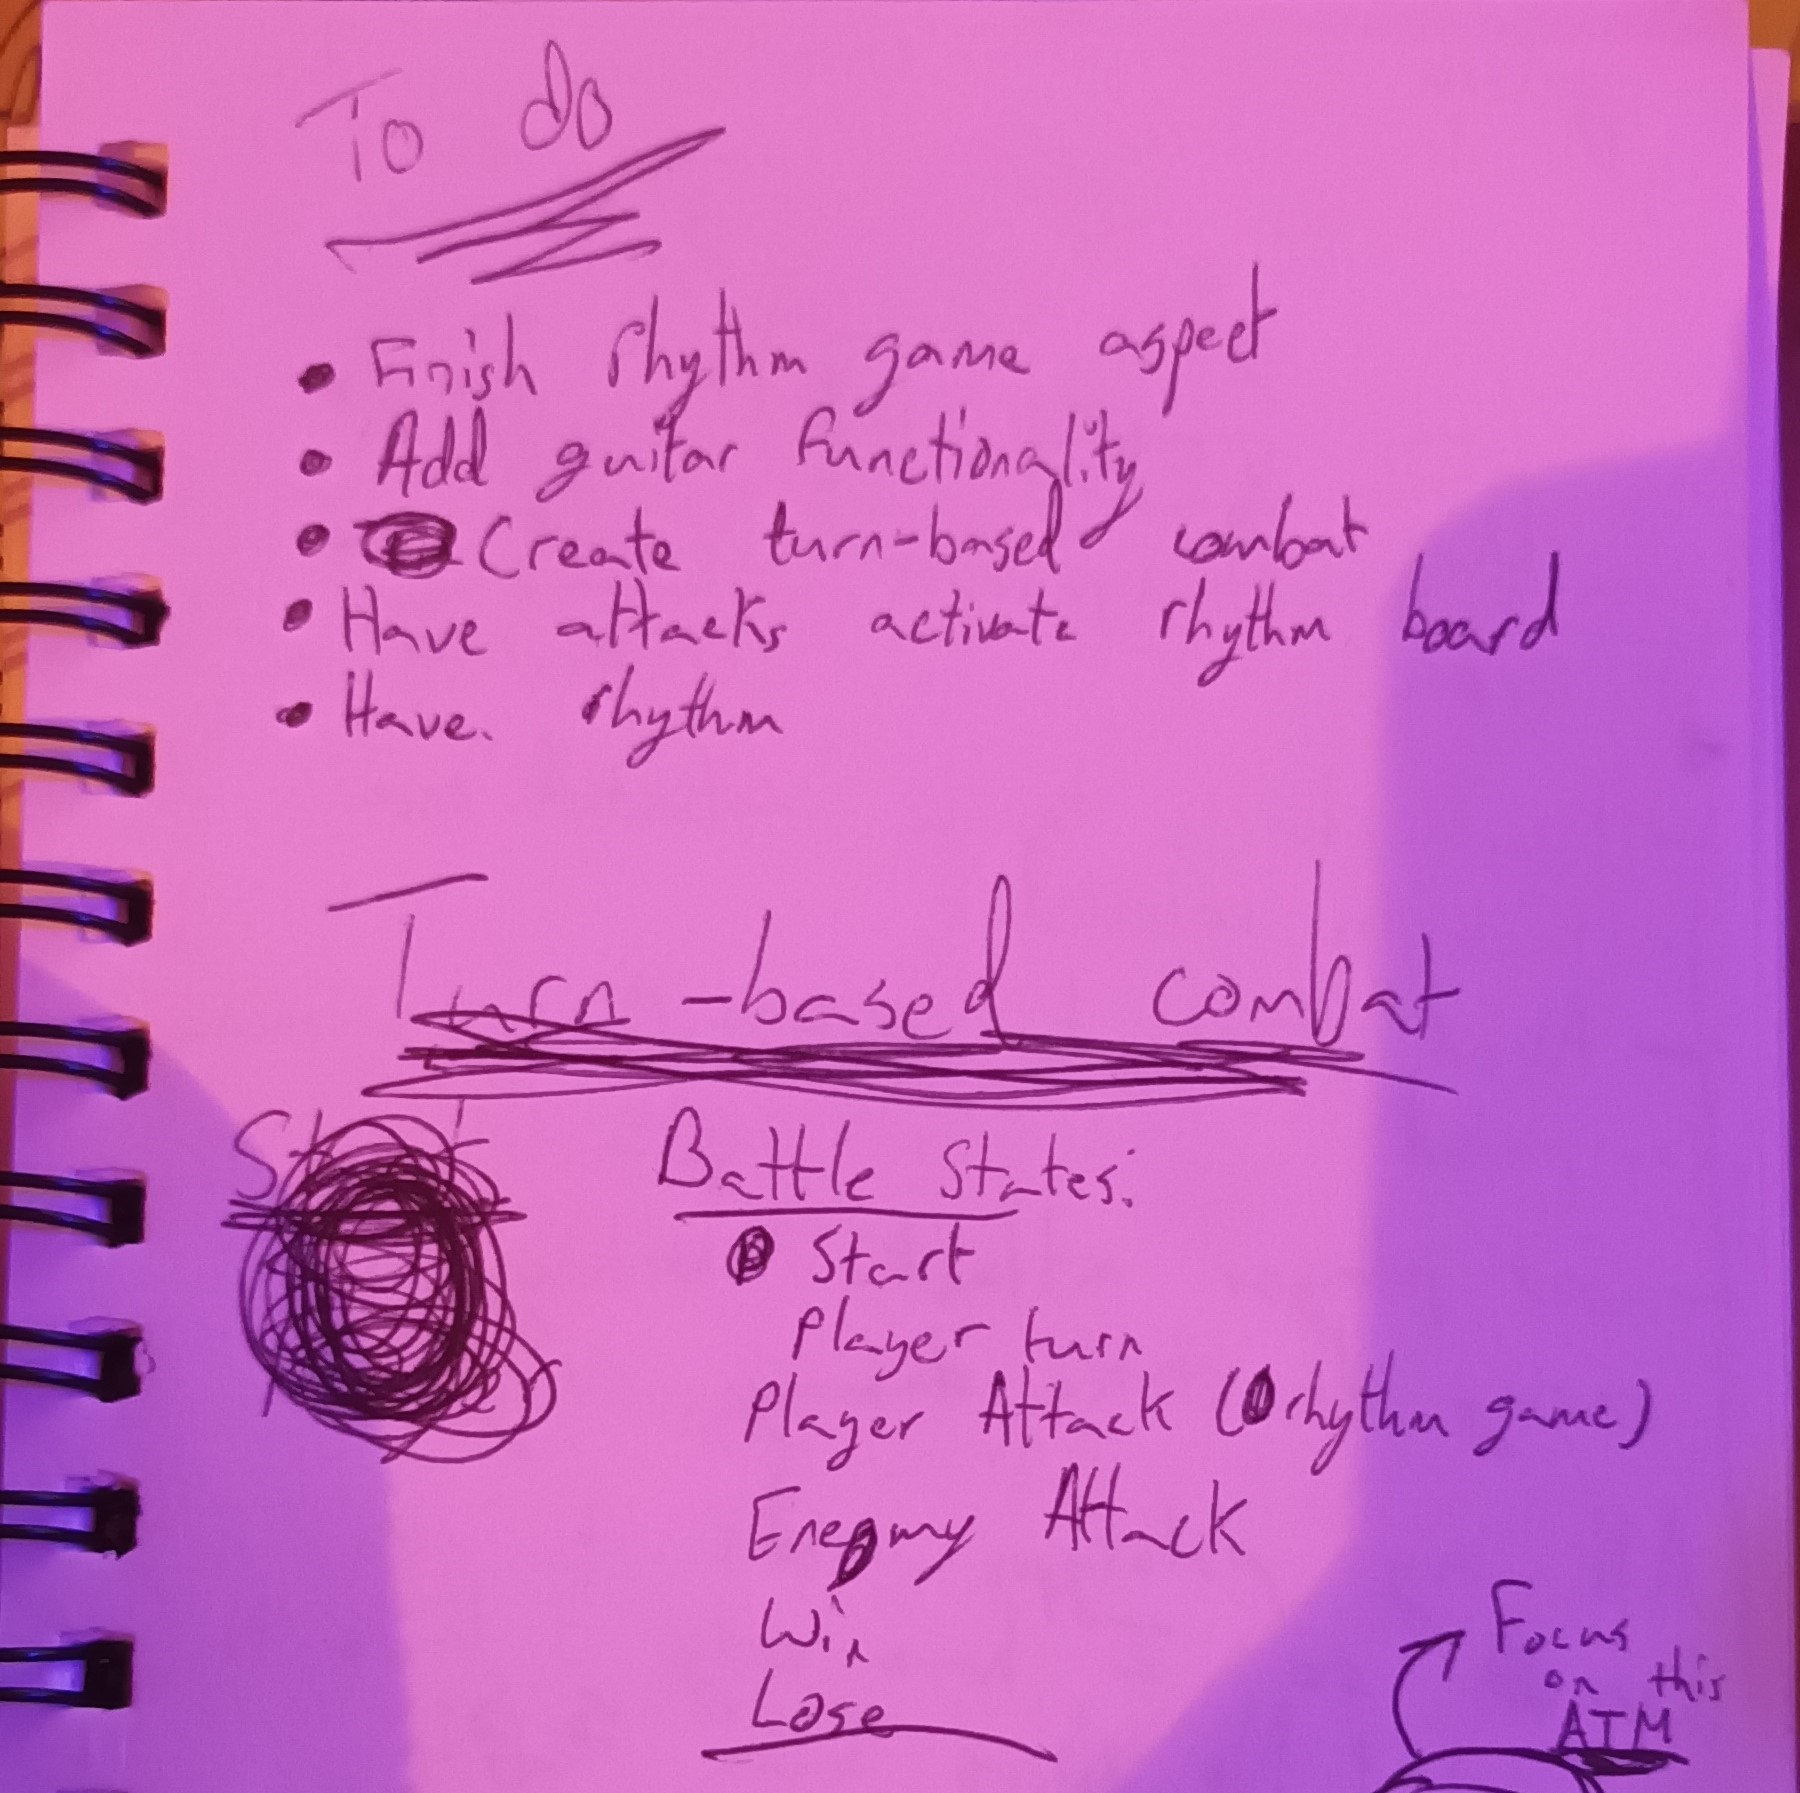 To do
• Finish rhythm game aspect
• Add guitar functionality
• Create turn-based combat
• Have attacks activate rhythm board
• Have. rhythm
Turn-based combat
Battle States:
• Start
Player turn
Player Attack (rhythm game)
Enemy Attack
Win
Lose
Focus
on this
ATM